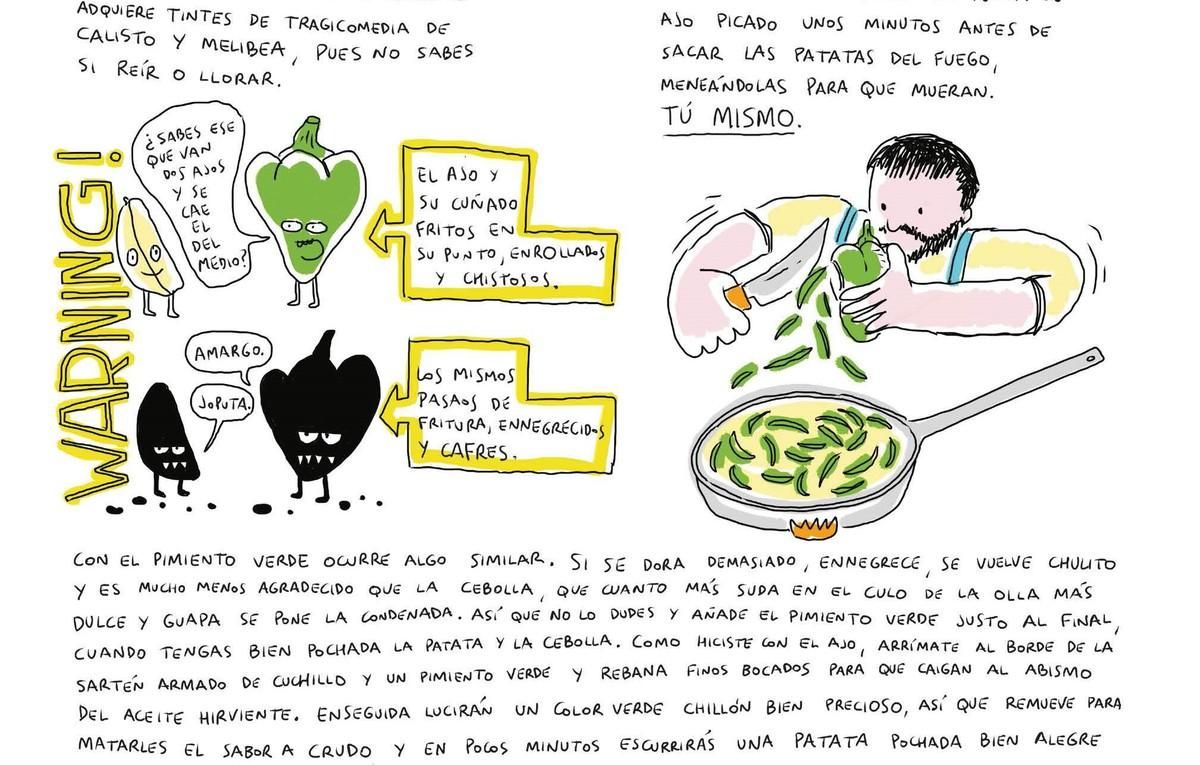 ADQUIERE TINTES DE TRAGICOMEDIA DE
CALISTO Y MELIBEA, PUES NO SABES
SI REÍR O LLORAR.
AJO PICADO UNOS MINUTOS ANTES DE
SACAR LAS PATATAS DEL FUEGO,
MENEÁNDOLAS PARA QUE MUERAN.
TÚ MISMO.
WARNING!
¿SABES ESE
QUE VAN
DOS AJOS
Y SE
CAE
EL
DEL
MEDIO?
EL AJO Y
SU CUÑADO
FRITOS EN
SU PUNTO, ENROLLADOS
Y CHISTOSOS.
AMARGO.
JOPUTA.
LOS MISMOS
PASAOS DE
FRITURA, ENNEGRECIDOS
Y CAFRES.
CON EL PIMIENTO VERDE OCURRE ALGO SIMILAR. SI SE DORA DEMASIADO, ENNEGRECE, SE VUELVE CHULITO
Y ES MUCHO MENOS AGRADECIDO QUE LA CEBOLLA, QUE CUANTO MÁS SUDA EN EL CULO DE LA OLLA MÁS
DULCE Y GUAPA SE PONE LA CONDENADA. ASÍ QUE NO LO DUDES Y AÑADE EL PIMIENTO VERDE JUSTO AL FINAL,
CUANDO TENGAS BIEN POCHADA LA PATATA Y LA CEBOLLA. COMO HICISTE CON EL AJO, ARRÍMATE AL BORDE DE LA
SARTÉN ARMADO DE CUCHILLO Y UN PIMIENTO VERDE Y REBANA FINOS BOCADOS PARA QUE CAIGAN AL ABISMO
DEL ACEITE HIRVIENTE. ENSEGUIDA LUCIRÁN UN COLOR VERDE CHILLÓN BIEN PRECIOSO, ASÍ QUE REMUEVE PARA
MATARLES EL SABOR A CRUDO Y EN POCOS MINUTOS ESCURRIRÁS UNA PATATA POCHADA BIEN ALEGRE